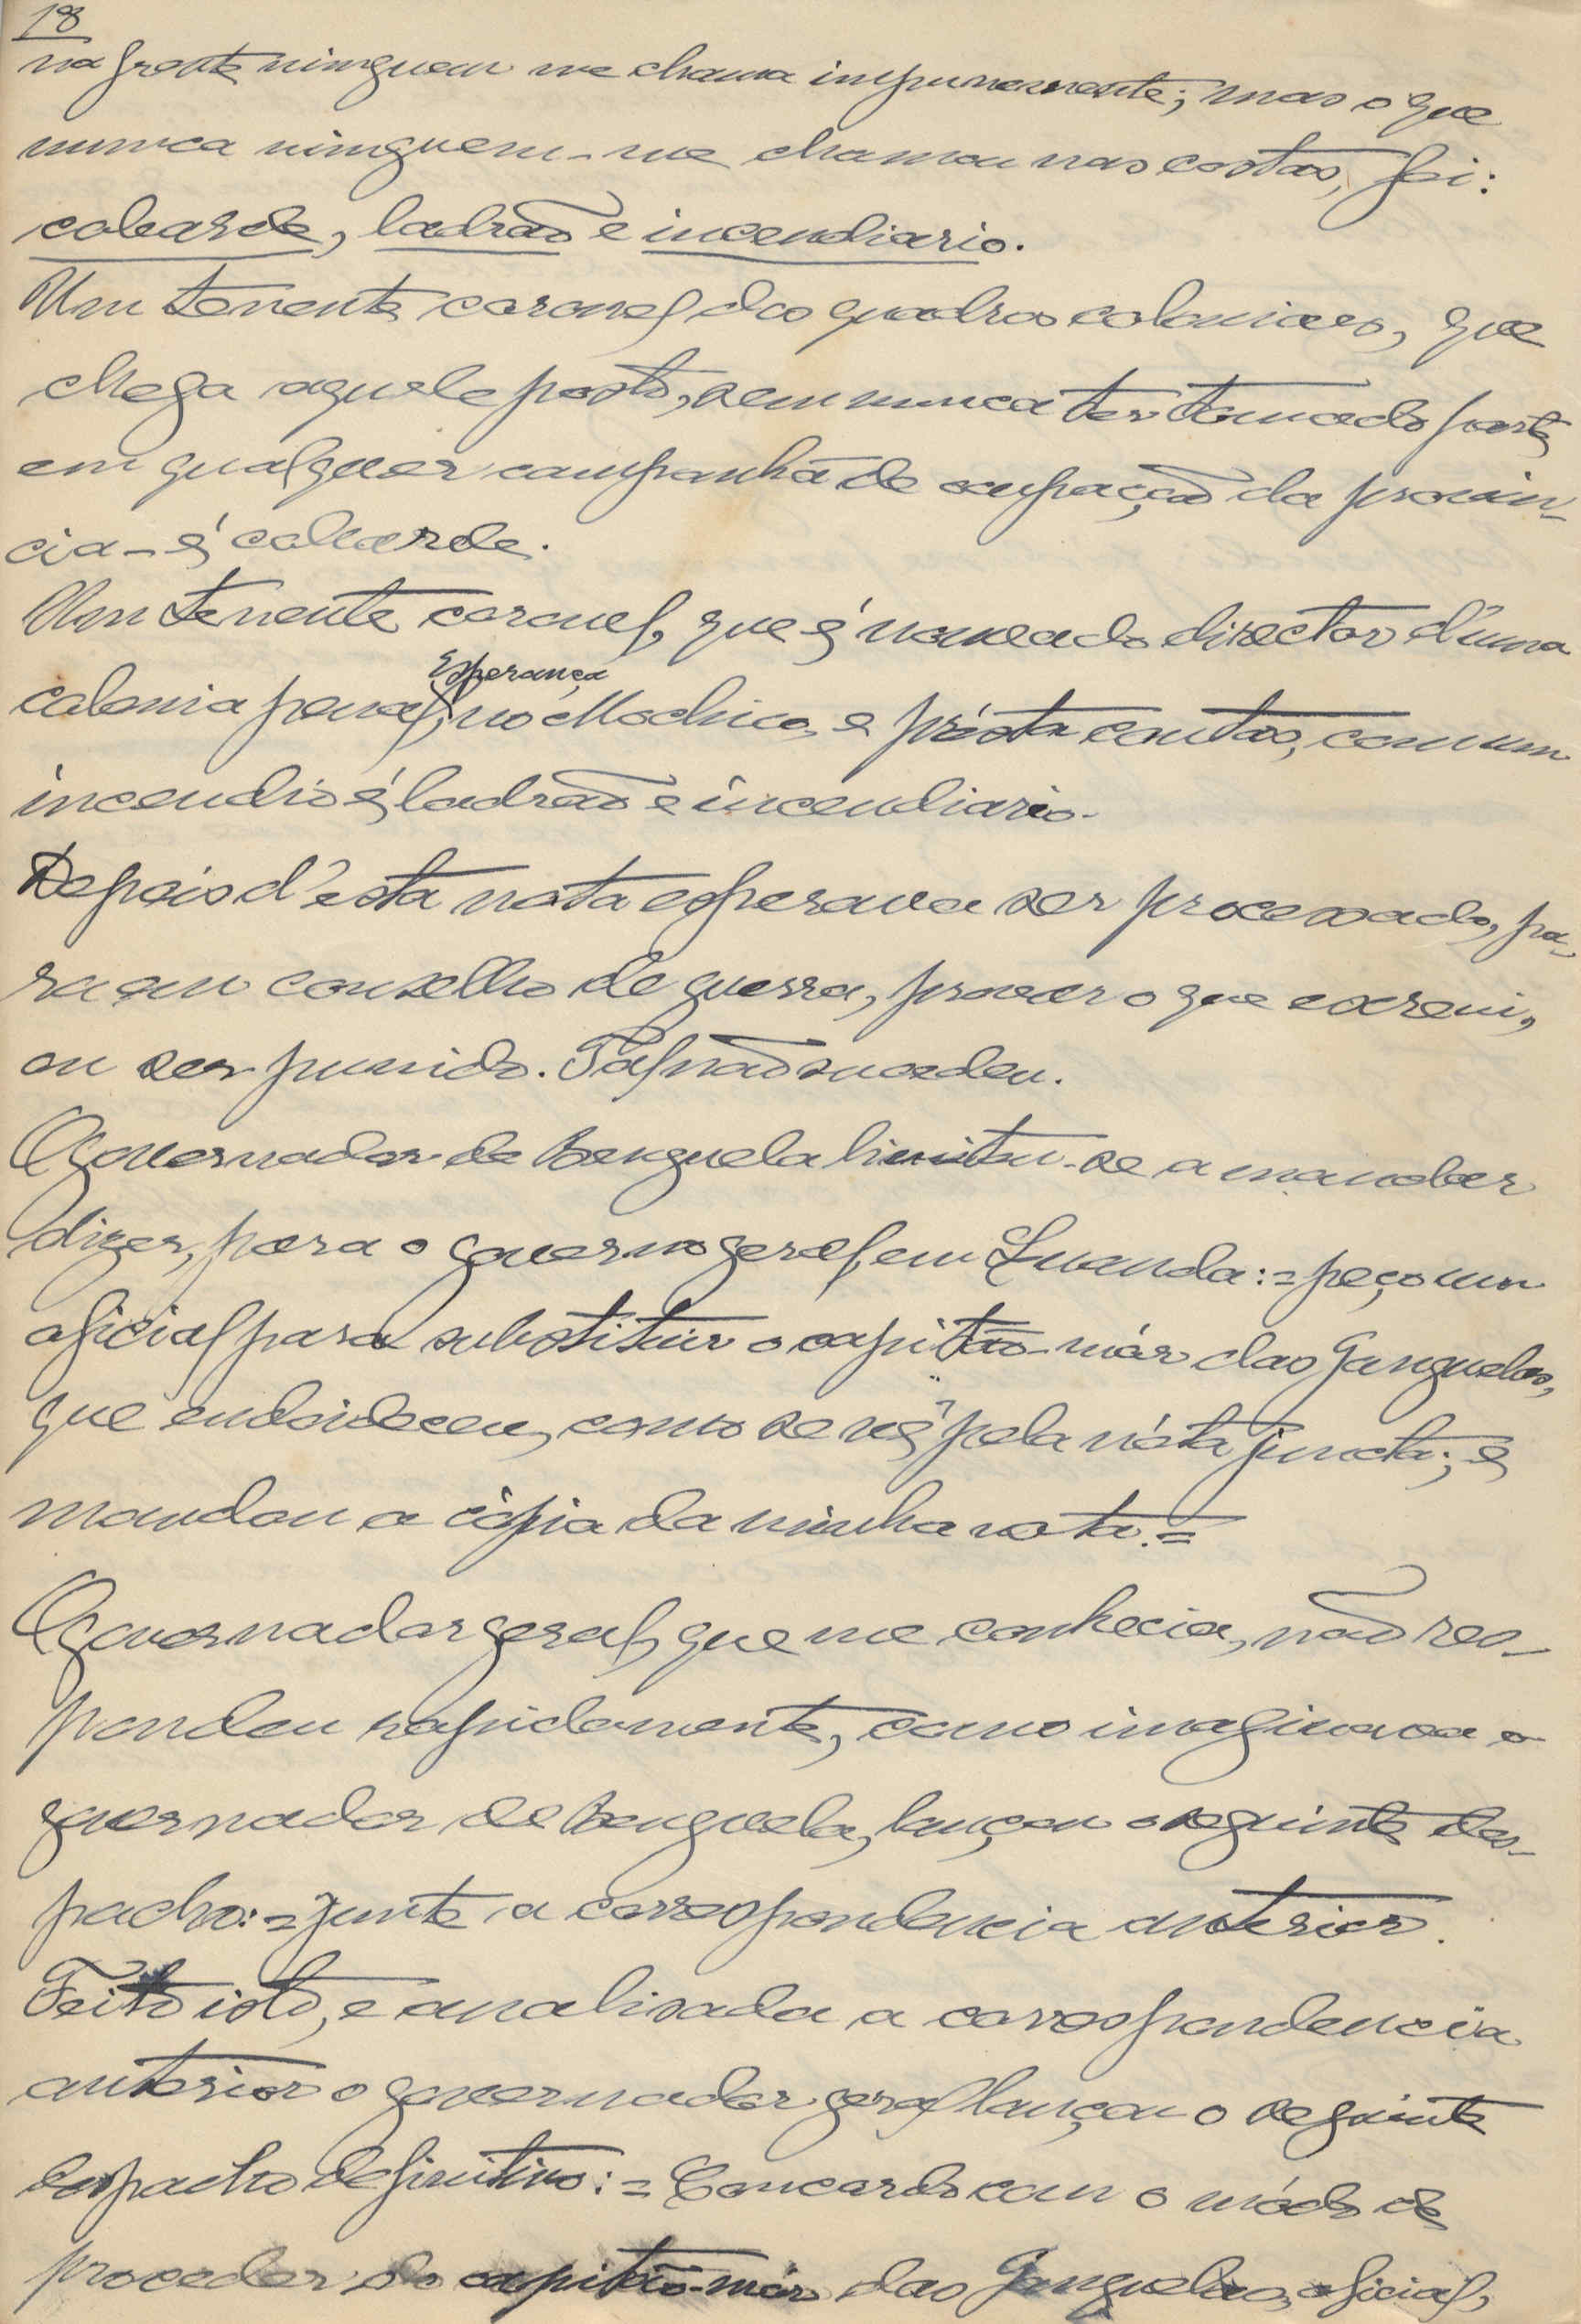 18
na frente ninguem me chama impunemente; mas o que
nunca ninguem-me chamou nas costas, foi:
cobarde, ladrão e incendiario.
Um tenente coronel dos quadros coloniaes, que
chega aquele posto, sem nunca ter tomado parte
em qualquer campanha de ocupação da provin-
cia - é cobarde.
Um tenente coronel, que é nomeado director d'uma
colonia penal, Esperança no Mochico, e présta contas, com um
incendio é ladrão e incendiario.
Depois d'esta nota esperava ser processado, pa-
ra em conselho de guerra, provar o que escrevi,
ou ser punido. Tal não sucedeu.
O governador de Benguela limitou-se a mandar
dizer, para o governo geral, em Luanda: = peço um
oficial para substituir o capitão-mór dos Ganguelas,
que endoideceu, como se vê pela nóta juncta; e
mandou a cópia da minha nota. =
O governador geral, que me conhecia, não res-
pondeu rapidamente, como imaginava o
governador de Benguela, lançou o seguinte des-
pacho: = Junte a correspondencia anterior.
Feito isto, e analisada a correspondencia
anterior o governador geral lançou o seguinte
despacho definitivo: = Concordo com o módo de
proceder do capitão-mór dos Ganguelas, oficial,